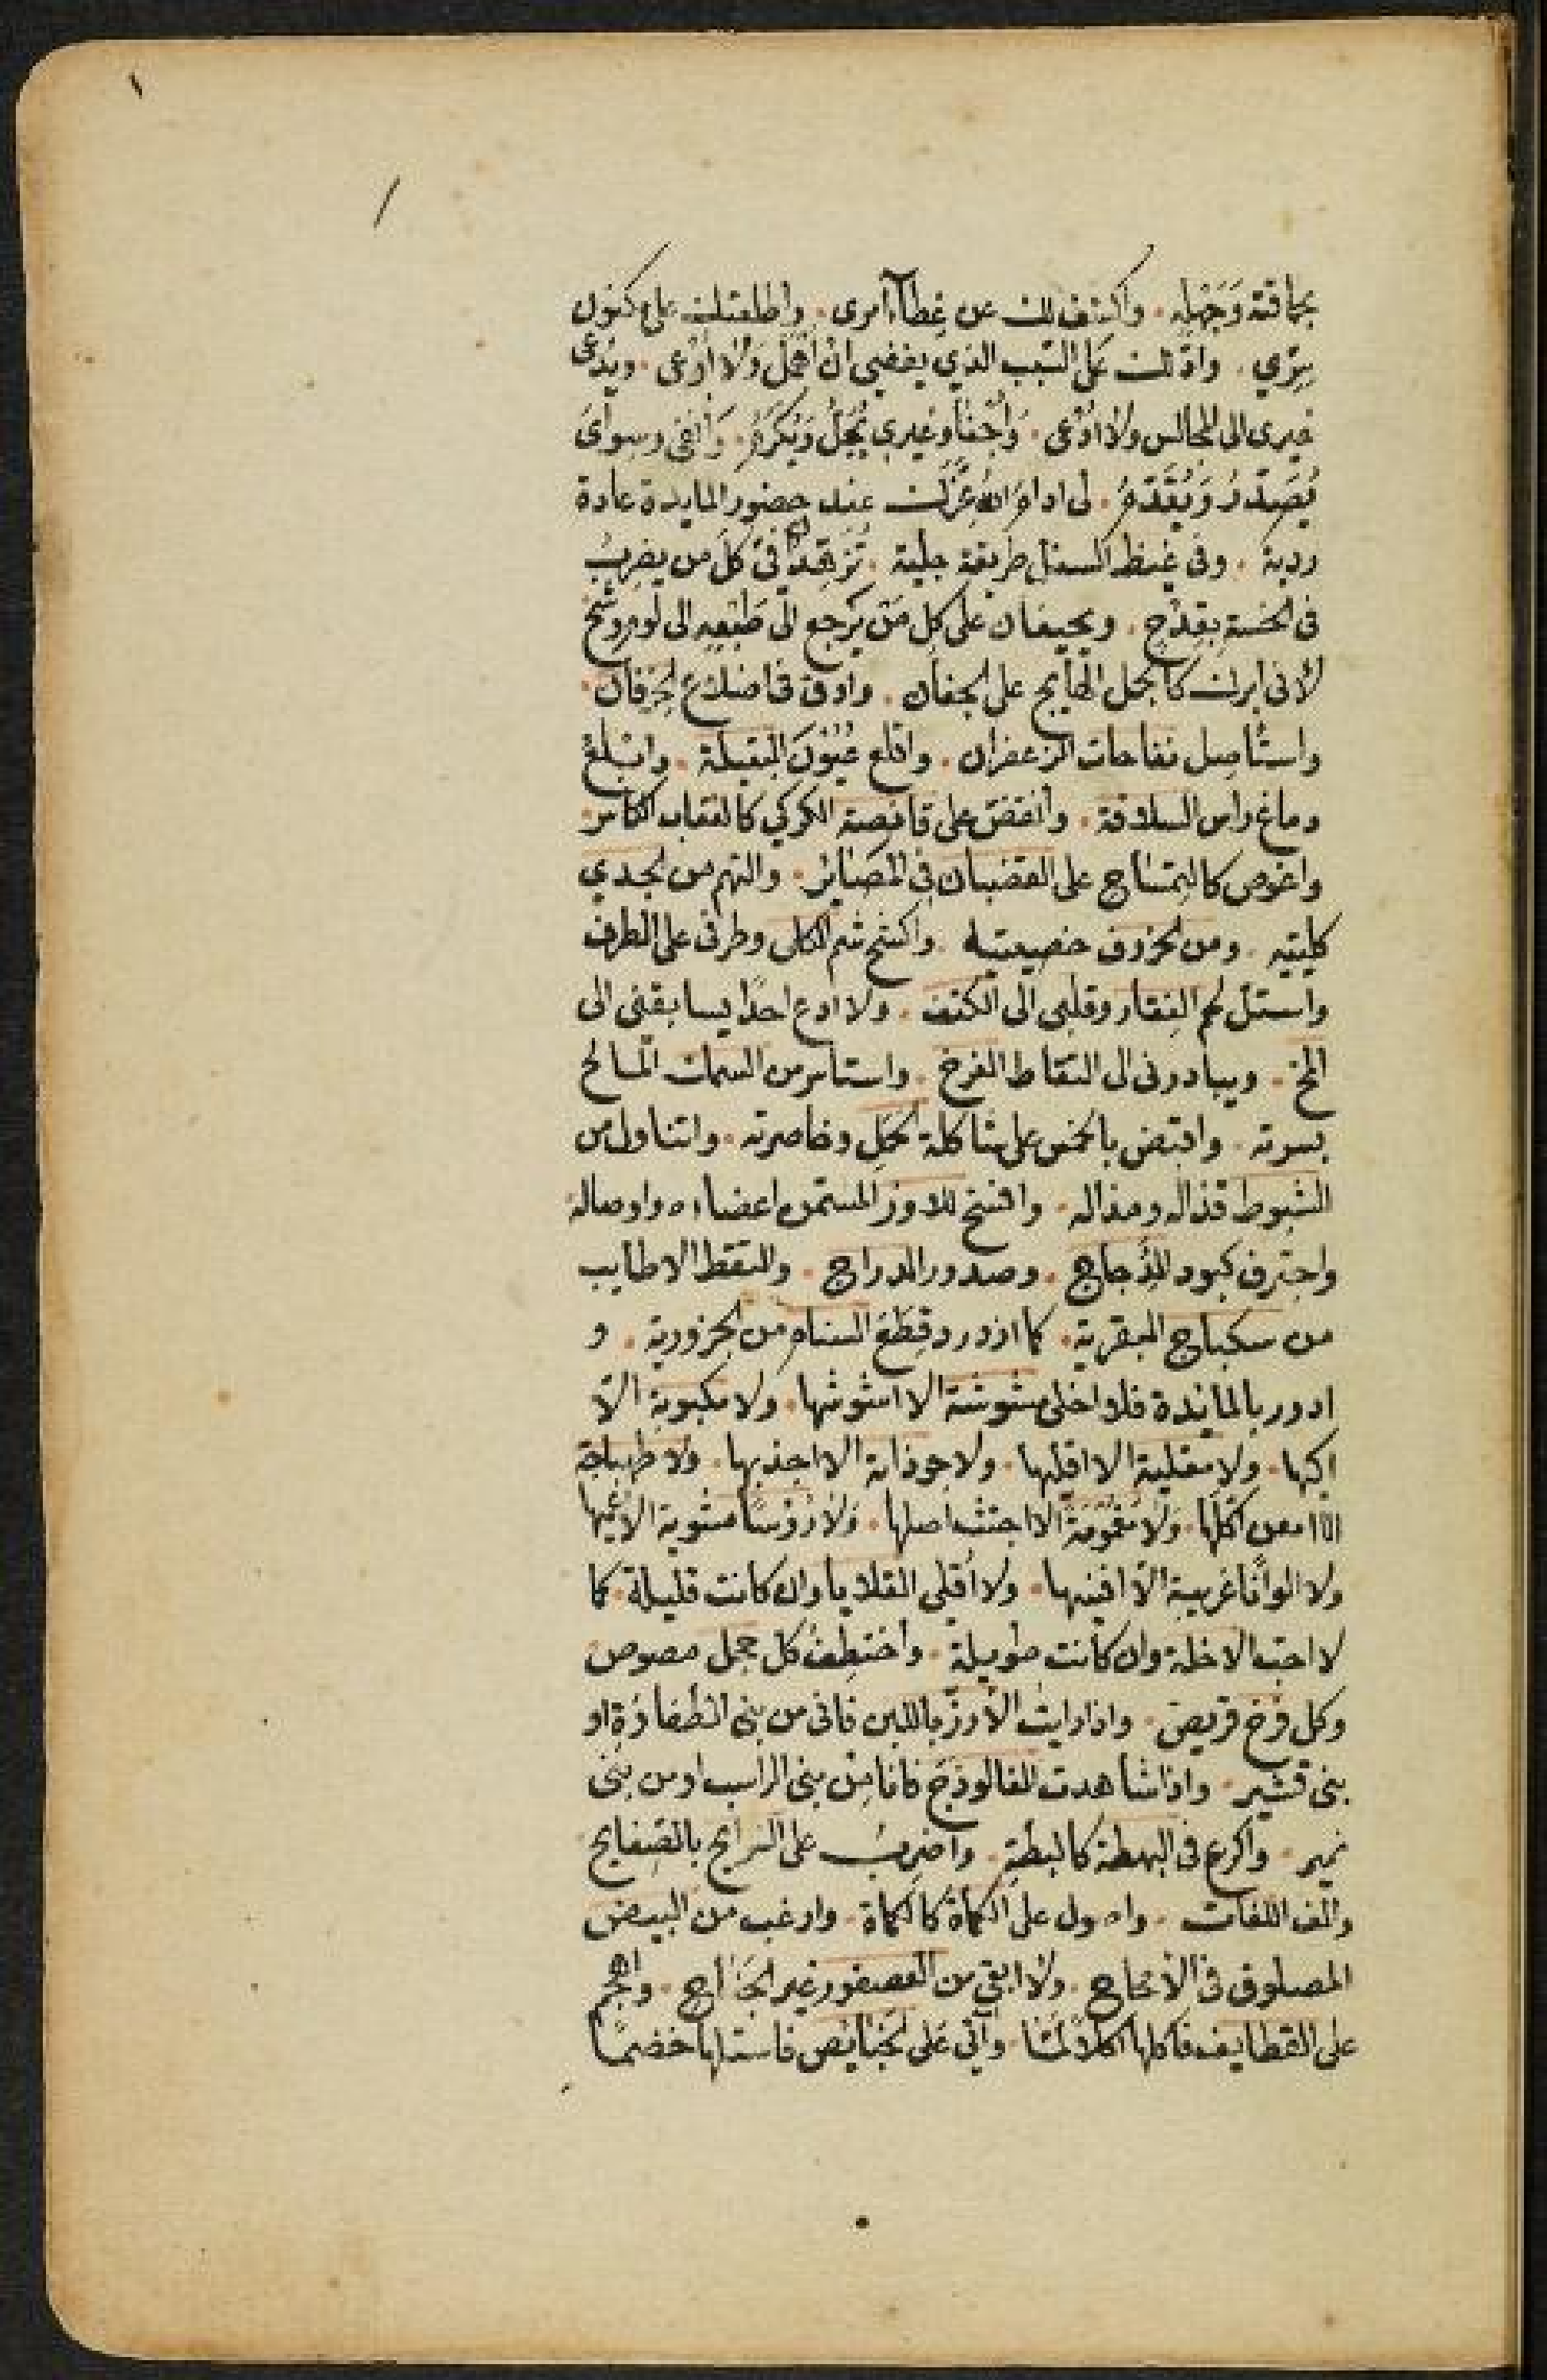 ١
بحماقته وَجَهْلِه . واكشف لك عن غِطآء امرى . واطلعتك على مكنون
سِرّي . وادّلك على السّبب الذي يقضى ان اُهْمَل وَلا اُرْعى . ويُدْعى
غيرى الى المجالس ولا اُدْعى . وَاُجْفَا وغيرى يُجَلّ وَيُكرَمُ . وَاُلغى وسواى
يُصَدّر وَيُقَدّمُ . لى ادام الله عزّك عند حضور المايدة عادة
ردية . وفى غيظ طريقة جلية . تُزهّد فىّ كلّ من يضربُ
فى الخسة بقِدْحٍ . ويحيفان على كل مَن يَرجع الى طبْعِهِ الى لُومٍ وشُحّ
لأنى ابرك كما الهايج على الجفان . وادق فى اضلاع الخرفان .
واستأصل تفاحات الزعفران . واقلع عيُوْنَ البقيلة . وابتلعُ
دماغ راس السلاقة . وأنقضّ على قانصة الكركي كالعقاب الكاسر .
واغوص كالتِمْساح على القضبان فى المَصَائر . والتهم من الجدي
كليتيه . ومن الخروف خصيتيه . واكشح شحم الكلى وطرفى على الطرف
واستلّ لحم الفقار وقلبى الى الكتف . ولا ادع احدًا يسابقنى الى
المخ . ويبادرنى الى التقاط الفرخ . واستاثر من السمك المالح
بسرته . واقبض بالخمس على شاكلة الحَمَل وخاصرته . واتناول من
الشبوط قذاله ومذاله . وافسخ للاوز المسمّن اعضاءه واوصاله
واجترف كبود الدُجاج . وصدور الدراج . والتقط الاطايب
من سكباج البقرية . كما ازدرد قِطَعَ السنام من الجزورية . و
ادور بالمائدة فلا اخلى مشوشة الا اشوشها . ولا مكبوبة الاّ
اكبها . ولا مقلية الا اقلبها . ولا جوذابة الا اجذبها . ولا طباهجة
الا امعن اكلها . وَلا مَغْمُومَةً الا اجتثّ اصلها . ولا رؤسًا مشوية الا
ولا الوانًا غريبة الاّ افنيها . ولا اُقلى القلايا وان كانت قليلة . كما
لا احب الاخلة وان كانت طويلة . واختطف كل حمل مصوص
وكل فرخ قريص . واذا رايت الأرزّ باللبن فانى من بنى او
بنى قشير . واذا شاهدت الفالوذجَ فانا مِن بنى الراسب او من بنى
نمير . واكرع فى البهطة كالبطةِ . واضربُ على الشرايح بالصفايح
والف اللفات . واصول على الكمأة كالكماة . وارغب من البيض
المصلوق فى . ولا ابقى من العصفور غير . واهجم
على القطايف فاكلها اكلاً لمّا . وآتى على فاستلها خضمًا